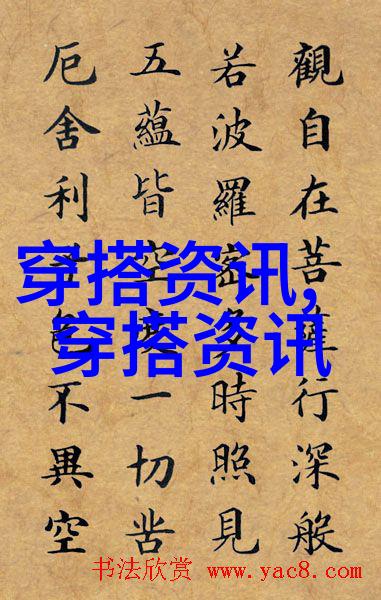 觀自在菩薩行深般
若波羅密多時照見
五蘊皆空度一切苦
厄舍利色不異空
穿搭资讯,
穿搭资讯
书法欣赏 www.yac8.com